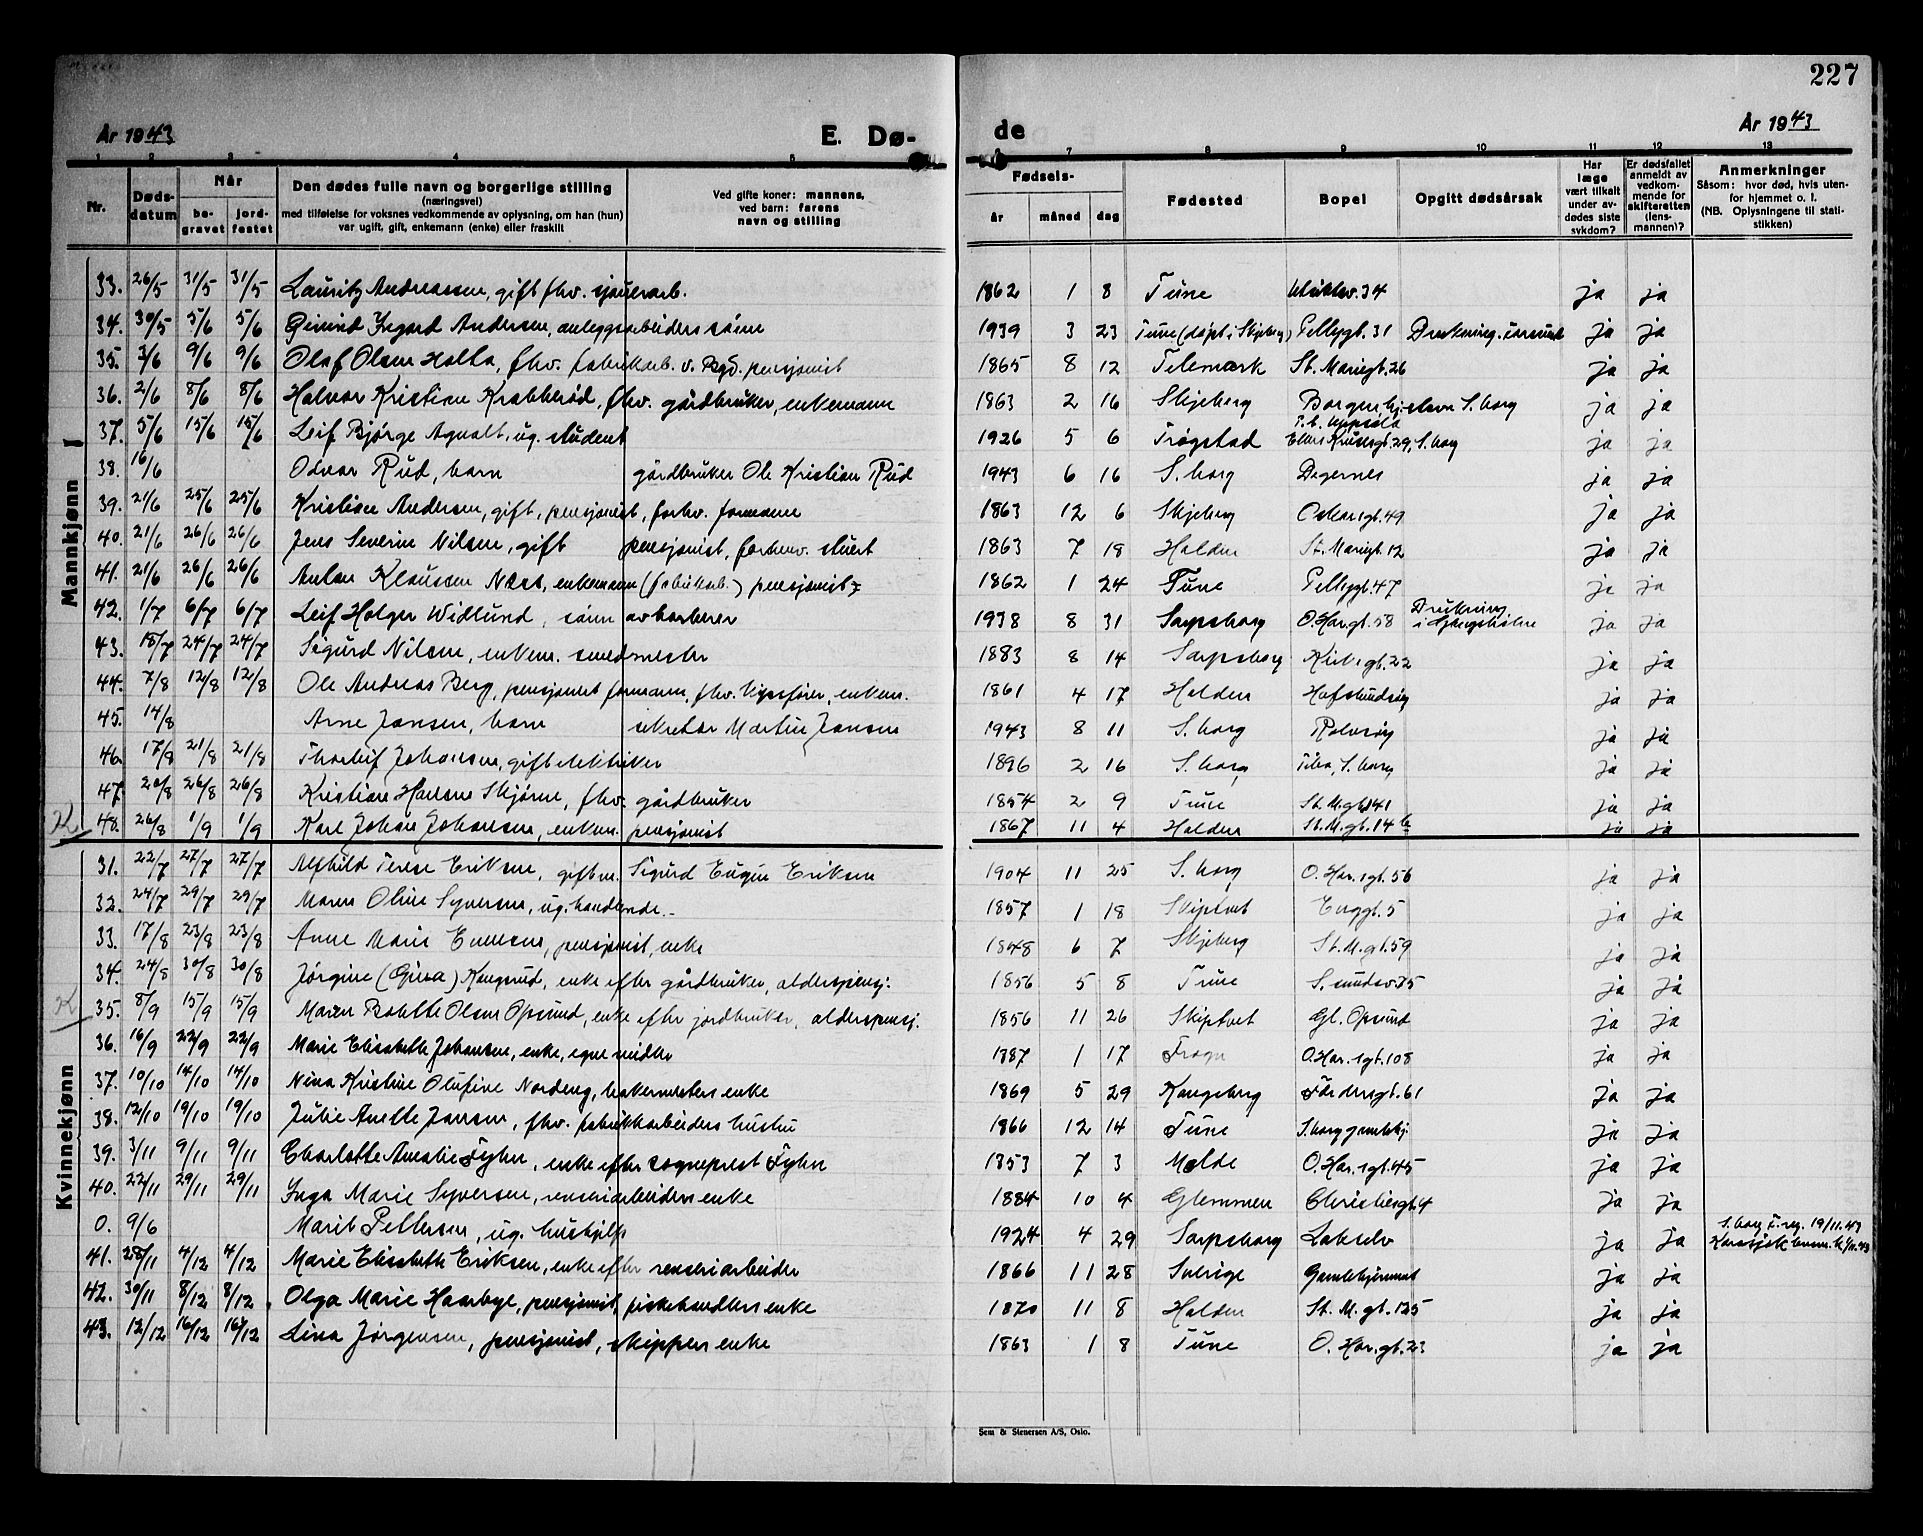 227
År 1943 E. Dø- de År 1943
1 2 3 4 5 7 8 9 10 11 12 13
Nr. Døds-datum Når be-gravet jord-festet Den dødes fulle navn og borgerlige stilling (næringsvei) med tilføielse for voksnes vedkommende av oplysning, om han (hun) var ugift, gift, enkemann (enke) eller fraskilt Ved gifte koner: mannens, ved barn: farens navn og stilling Fødsels- år måned dag Fødested Bopel Opgitt dødsårsak Har læge vært tilkalt under av-dødes siste sykdom? Er dødsfallet anmeldt av vedkom-mende for skifteretten (lens-mannen)? Anmerkninger Såsom: hvor død, hvis uten-for hjemmet o. l. (NB. Oplysningene til stati-stikken)
Mannkjønn
33. 26/5 31/5 31/5 Lauritz Andreassen, gift fhv. sjauerarb. 1862 1 8 Tune 34 ja ja
34. 30/5 5/6 5/6 Andersen, anleggsarbeiders sønn 1939 3 23 Tune (døpt i Skjeberg) Pellygt. 31 Drukning. ja ja
35. 3/6 9/6 9/6 Olaf Olsen Holta, fhv. fabrikarb. v. Bgd. pensjonist 1865 8 12 Telemark St. Mariegt. 26 ja ja
36. 2/6 8/6 8/6 Halvor Kristian Krabberød, fhv. gårdbruker, enkemann 1863 2 16 Skjeberg S. borg ja ja
37. 5/6 15/6 15/6 Leif Bjørge Agnalt, ug. student 1926 5 6 Trøgstad p.t. Uppsala 29, S. borg ja ja
38. 16/6 Odvar Rud, barn gårdbruker Ole Kristian Rud 1943 6 16 S. borg Degernes ja ja
39. 21/6 25/6 25/6 Kristian Andersen, gift, pensjonist, forhv. formann 1863 12 6 Skjeberg Oskarsgt. 49 ja ja
40. 21/6 26/6 26/6 Jens Severin Nilsen, gift pensjonist, forhenv. stuert 1863 7 18 Halden St. Mariegt. 12 ja ja
41. 21/6 26/6 26/6 Anton Klausen Næss, enkemann (fabrikarb.) pensjonist 1862 1 24 Tune Pellygt. 47 ja ja
42. 1/7 6/7 6/7 Leif Holger Widlund, sønn av barberer 1938 8 31 Sarpsborg O. Har. gt. 58 Drukning i ja ja
43. 18/7 24/7 24/7 Sigurd Nilsen, enkem. smedmester 1883 8 14 Sarpsborg Kirkegt. 22 ja ja
44. 7/8 12/8 12/8 Ole Andreas Berg, pensjonist formann, fhv. enkem. 1861 4 17 Halden Hafslundsøy ja ja
45. 14/8 Arne Jansen, barn sekretær Martin Jansen 1943 8 11 S. borg Rolvsøy ja ja
46. 17/8 21/8 21/8 Thorleif Johansen, gift elektriker 1896 2 16 S. borg S. borg ja ja
47. 20/8 26/8 26/8 Kristian Hansen Skjøren, fhv. gårdbruker 1854 2 9 Tune St. M. gt. 141 ja ja
K. 48. 26/8 1/9 1/9 Karl Johan Johansen, enkem. pensjonist 1867 11 4 Halden St. M. gt. 14 b ja ja
Kvinnekjønn
31. 22/7 27/7 27/7 Alfhild Terese Eriksen, gift m. Sigurd Eugen Eriksen 1904 11 25 S. borg O. Har. sgt. 56 ja ja
32. 24/7 29/7 29/7 Maren Oline Syversen, ug. handlende. 1857 1 18 Skiptvet Enggt. 5 ja ja
33. 17/8 23/8 23/8 Anne Marie Evensen, pensjonist, enke 1848 6 7 Skjeberg St. M. gt. 59 ja ja
34. 24/8 30/8 30/8 Jørgine (Gina) Kongsrud, enke efter gårdbruker, alderspensj. 1856 5 8 Tune ja ja
K. 35. 8/9 15/9 15/9 Maren Bolette Olsen Opsund, enke efter jordbruker, alderspensj. 1856 11 26 Skiptvet Gl. Opsund ja ja
36. 16/9 22/9 22/9 Marie Elisabeth Johansen, enke, egne midler 1887 1 17 Frogn O. Har. sgt. 108 ja ja
37. 10/10 14/10 14/10 Nina Kristine Olufine Nordeng, bakermesters enke 1869 5 29 Kongsberg 61 ja ja
38. 12/10 19/10 19/10 Julie Anette Jansen, fhv. fabrikkarbeiders hustru 1866 12 14 Tune S. borg gamlehj. ja ja
39. 3/11 9/11 9/11 Charlotte Amalie Fyhn, enke efter sogneprest Fyhn 1853 7 3 Molde O. Har. sgt. 45 ja ja
40. 22/11 29/11 29/11 Inga Marie Syversen, renseriarbeiders enke 1884 10 4 Glemmen Christiesgt. 4 ja ja
0. 9/6 Marit Pettersen, ug. hushjelp 1924 4 29 Sarpsborg Lakselv ja ja S. borg f. reg. 19/11.43 Karasjok
41. 28/11 4/12 4/12 Marie Elisabeth Eriksen, enke efter renseriarbeider 1866 11 28 Sverige Gamlehjemmet ja ja
42. 30/11 8/12 8/12 Olga Marie Haarbye, pensjonist, fiskehandlers enke 1870 11 8 Halden St. M. gt. 125 ja ja
43. 12/12 16/12 16/12 Lina Jørgensen, pensjonist, skippers enke 1863 1 8 Tune O. Har. gt. 23 ja ja
Sem & Stenersen A/S, Oslo.